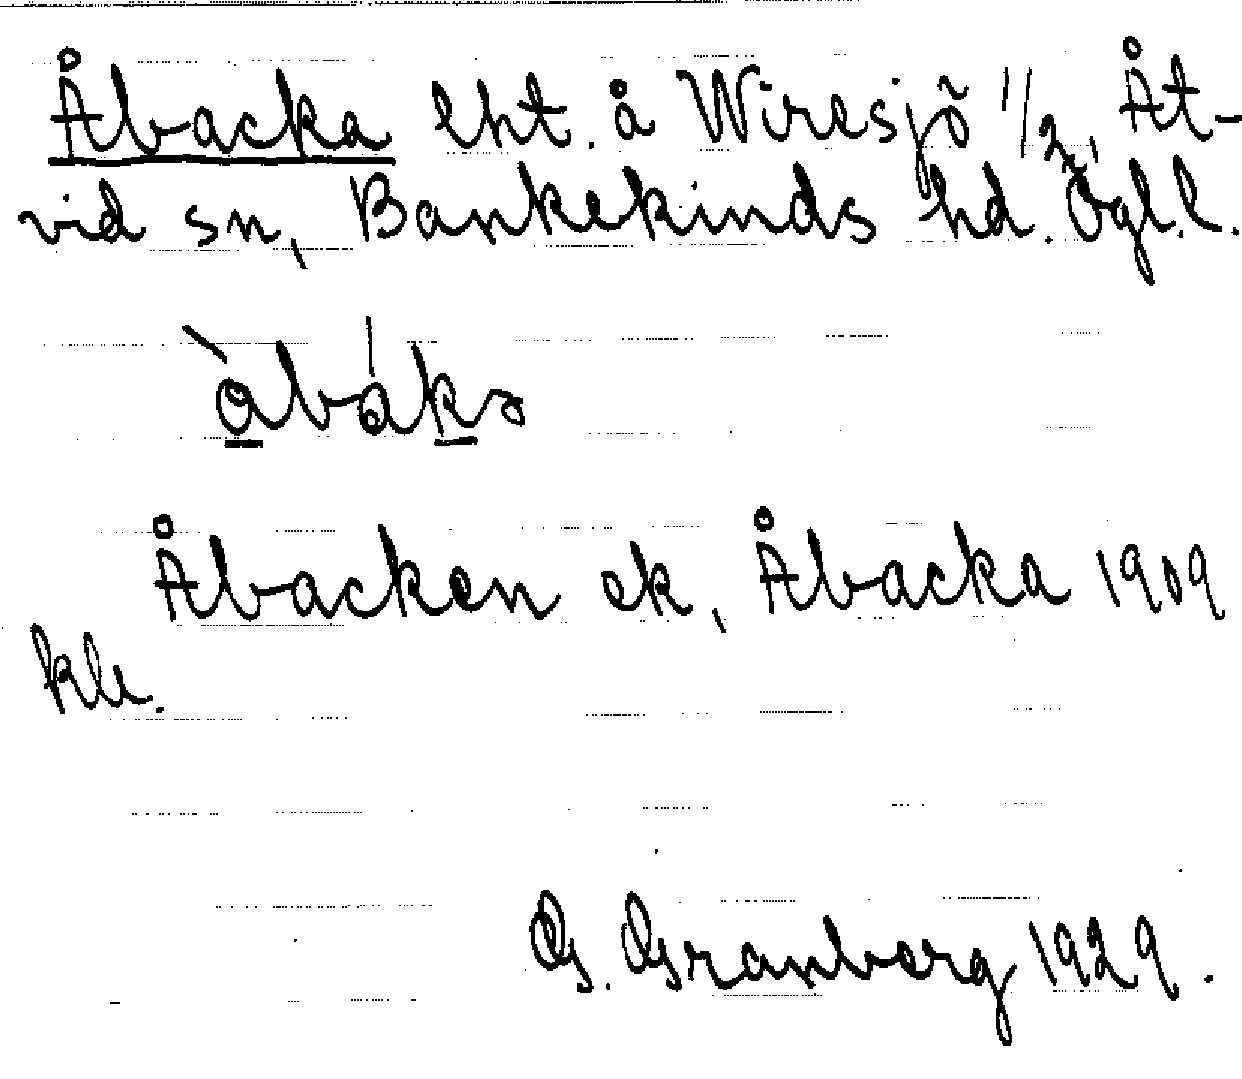 Åbacka lht. å Wiresjö 1/2, Åt-
vid sn, Bankekinds hd. Ögl.l.
åbáka
Åbacken ek, Åbacka 1909
kle.
G. Granberg 1929.